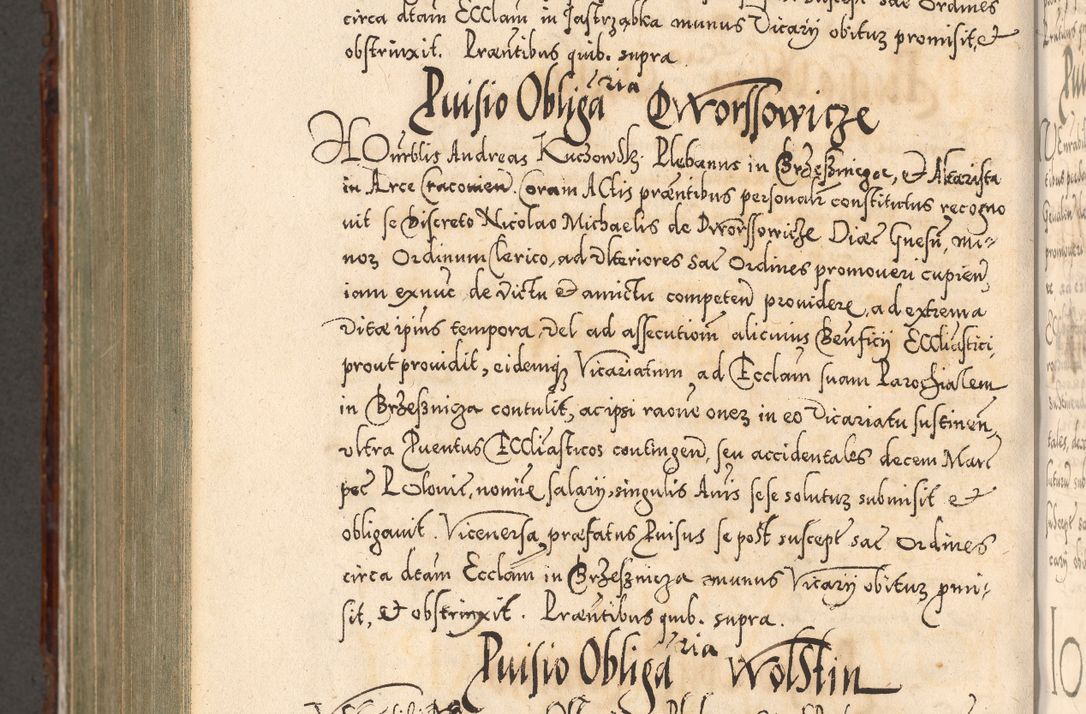 circa dtam Ecclam in Jastrząbka munus Vicarÿ obituꝫ promisit, et
obstrinxit. Præntibus quib. supra
Puisio Obligaria Dworssowicze
Honrblis Andreas Kuczowsk. Plebanus in Brzeßnicza, et Altarista
in Arce Cracovien. Coram Actis præntibus personalr constitutus recogno
uit se Discreto Nicolao Michaelis de Dworssowicze Diæc Gnesn, mi-
noꝫ Ordinum Clerico, ad vlteriores sac Ordines promoueri cupien,
iam ex nuc de victu et amictu competen prouidere, ad extrema
vitæ ipius tempora, vel ad assecutioem alicuius Benficÿ Eccliastici,
prout prouidit, eidemqꝫ Vicariatum ad Ecclam suam Parochialem
in Brzeßnicza contulit, ac ipsi raone oneꝫ in eo Vicariatu sustinen,
vltra Puentus Eccliasticos contingen, seu accidentales decem Marc
pec Polonic, nomie salarÿ, singulis Anis se se soluturꝫ submisit et
obligauit. Viceuersa, præfatus Puisus se post suscept sac Ordines
circa dtam Ecclam in Brzeßnicza munus Vicarÿ obituꝫ pmi-
sit, et obstrinxit. Præntibus quib. supra.
Puisio Obligaria Wolstin